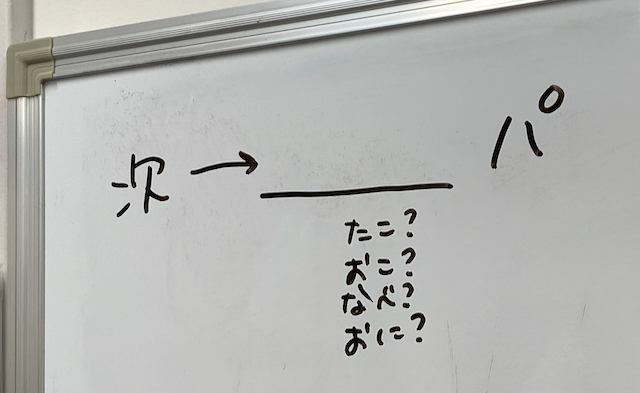 次→＿＿＿パ
たこ?
おこ?
なべ?
おに?